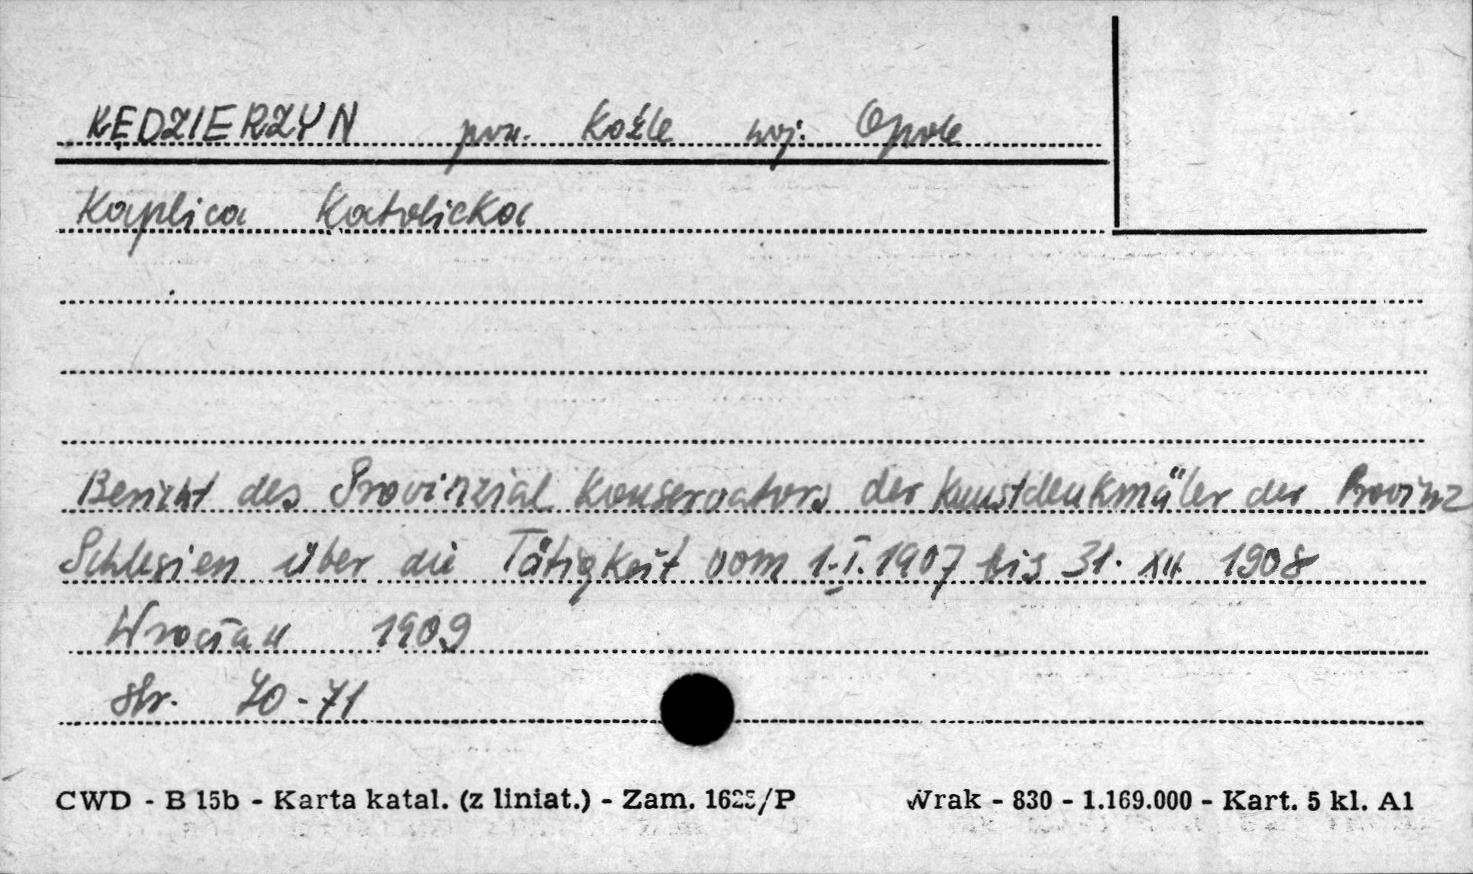 KĘDZIERZYN pow. Koźle woj. Opole
Kaplica Katolicka
Bericht des Provinzial Konservators der Kunstdenkmäler der Provinz
Schlesien über die Tätigkeit vom 1.I.1907 bis 31. XII 1908
Wrocław 1909
str. 70-71
CWD - B 15b - Karta katal. (z liniat.) - Zam. 1625/P Wrak - 830 - 1.169.000 - Kart. 5 kl. A1